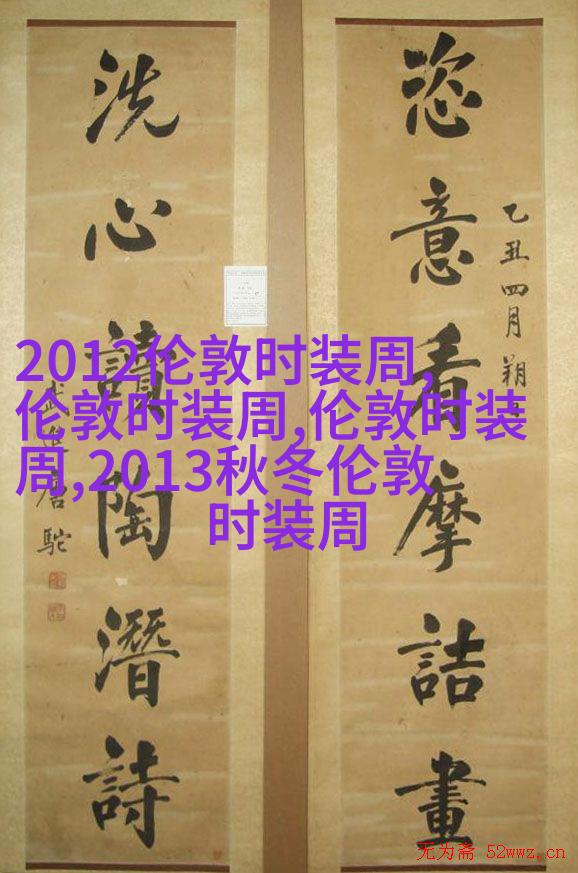 恣意看摩詰畫
乙丑四月朔
洗心讀陶潛詩
武進唐駝
2012伦敦时装周,
伦敦时装周,伦敦时装
周,2013秋冬伦敦
时装周
无为斋 52wwz.cn